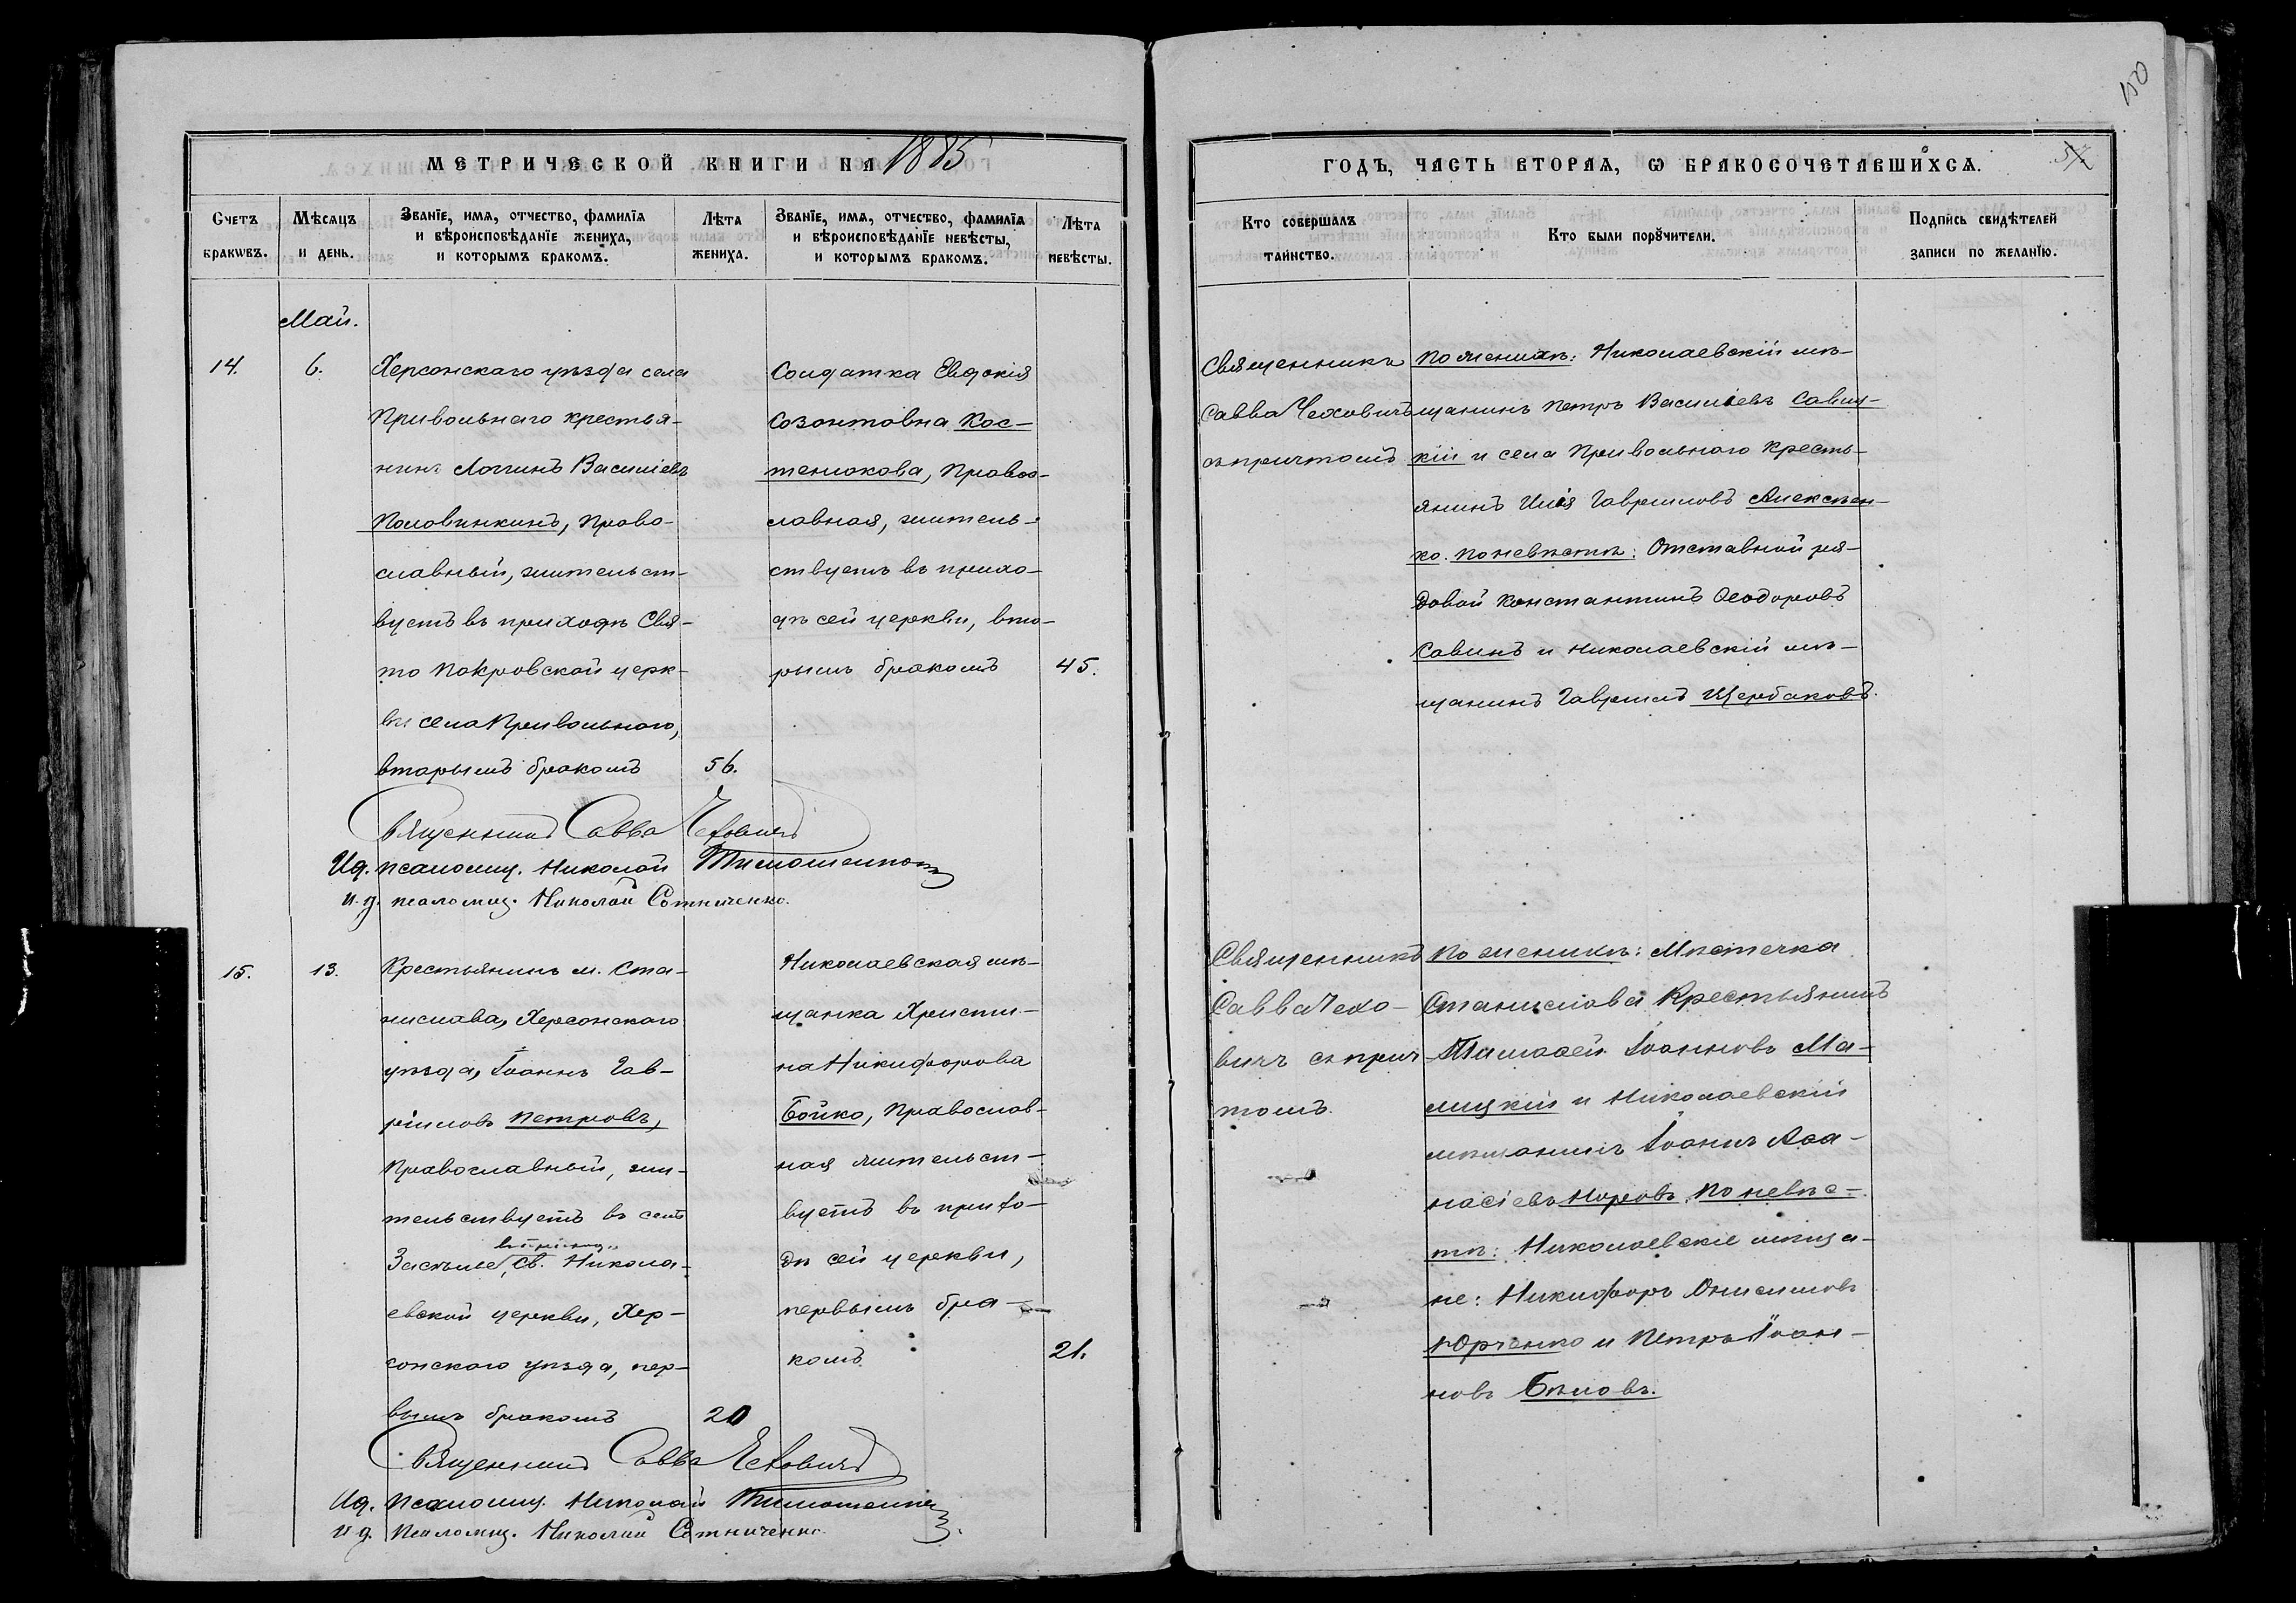 150
МЕТРИЧЕСКОЙ КНИГИ НА 1885
ГОДЪ, ЧАСТЬ ВТОРАЯ, Ѡ БРАКОСОЧЕТАВШИХСѦ.
57
Счетъ браковъ.
Мѣсяцъ и день.
Званїе, имя, отчество, фамилїя
и вѣроисповѣданїе жениха,
и которымъ бракомъ.
Лѣта жениха.
Званїе, имя, отчество, фамилїя
и вѣроисповѣданїе невѣсты,
и которымъ бракомъ.
Лѣта невѣсты.
Кто совершалъ таинство.
Кто были порꙋчители.
Подпись свидѣтелей
записи по желанїю.
Май.
14.
6.
Херсонскаго уѣзда села
Привольнаго крестья-
нинъ Логгинъ Василіевъ
Половинкинъ, право-
славный, жительст-
вуетъ въ приходѣ Свя-
то Покровской церк-
ви села Привольнаго,
вторымъ бракомъ
56.
Солдатка Евдокія
Созонтовна Кос-
тенюкова, правос-
лавная, житель-
ствуетъ въ прихо-
дѣ сей церкви, вто-
рымъ бракомъ
45.
Священникъ
Савва Чеховичъ
съ причтомъ
По женихѣ: Николаевскій мѣ-
щанинъ Петръ Василіевъ Савиц-
кій и села Привольнаго кресть-
янинъ Илія Гавриловъ Алексѣен-
ко. по невѣстѣ: Отставной ря-
довой Константинъ Ѳеодоровъ
Савинъ и Николаевскій мѣ-
щанинъ Гавріилъ Щербаковъ.
Священникъ Савва Чеховичъ
И д. псаломщ. Николай Тимошенко
и. д. псаломщ. Николай Сотниченко.
15.
13.
Крестьянинъ м. Ста-
нислава, Херсонскаго
уѣзда, Іоаннъ Гав-
ріиловъ Петровъ,
православный, жи-
тельствуетъ въ селѣ
въ приходѣ
Засѣлье, Св. Никола-
евской церкви, Хер-
сонскаго уѣзда, пер-
вымъ бракомъ
20
Николаевская мѣ-
щанка Христи-
на Никифорова
Бойко, православ-
ная жительст-
вуетъ въ прихо-
дѣ сей церкви,
первымъ бра-
комъ
21.
Священникъ
Савва Чехо-
вичъ съ прич-
томъ.
По женихѣ: Мѣстечка
Станислава крестьянинъ
Тимоѳей Іоанновъ Ма-
лицкій и Николаевскій
мѣщанинъ Іоаннъ Аѳа-
насіевъ Норовъ. По невѣс-
тѣ: Николаевскіе мѣща-
не: Никифоръ Онисимовъ
Юрченко и Петръ Іоан-
новъ Бѣловъ.
Священникъ Савва Чеховичъ
И д. псаломщ. Николай Тимошенко
и д. псаломщ. Николай Сотниченко.